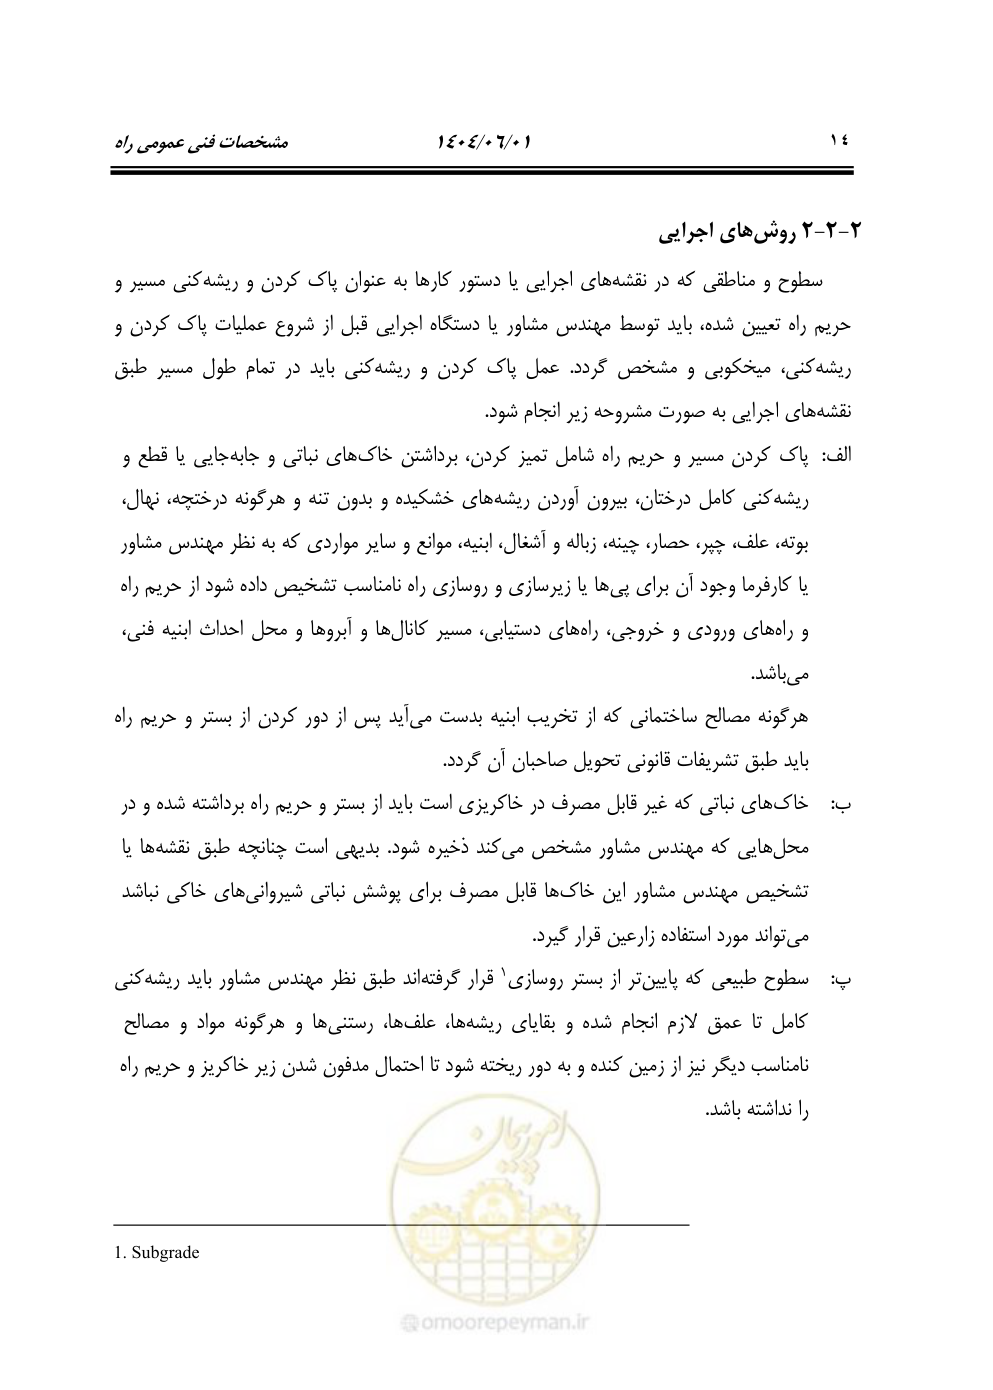 ۱٤ ۱٤۰٤/۰٦/۰۱ مشخصات فنی عمومی راه
۲-۲-۲ روش‌های اجرایی
سطوح و مناطقی که در نقشه‌های اجرایی یا دستور کارها به عنوان پاک کردن و ریشه‌کنی مسیر و
حریم راه تعیین شده، باید توسط مهندس مشاور یا دستگاه اجرایی قبل از شروع عملیات پاک کردن و
ریشه‌کنی، میخکوبی و مشخص گردد. عمل پاک کردن و ریشه‌کنی باید در تمام طول مسیر طبق
نقشه‌های اجرایی به صورت مشروحه زیر انجام شود.
الف: پاک کردن مسیر و حریم راه شامل تمیز کردن، برداشتن خاک‌های نباتی و جابه‌جایی یا قطع و
ریشه‌کنی کامل درختان، بیرون آوردن ریشه‌های خشکیده و بدون تنه و هرگونه درختچه، نهال،
بوته، علف، چپر، حصار، چینه، زباله و آشغال، ابنیه، موانع و سایر مواردی که به نظر مهندس مشاور
یا کارفرما وجود آن برای پی‌ها یا زیرسازی و روسازی راه نامناسب تشخیص داده شود از حریم راه
و راه‌های ورودی و خروجی، راه‌های دستیابی، مسیر کانال‌ها و آبروها و محل احداث ابنیه فنی،
می‌باشد.
هرگونه مصالح ساختمانی که از تخریب ابنیه بدست می‌آید پس از دور کردن از بستر و حریم راه
باید طبق تشریفات قانونی تحویل صاحبان آن گردد.
ب: خاک‌های نباتی که غیر قابل مصرف در خاکریزی است باید از بستر و حریم راه برداشته شده و در
محل‌هایی که مهندس مشاور مشخص می‌کند ذخیره شود. بدیهی است چنانچه طبق نقشه‌ها یا
تشخیص مهندس مشاور این خاک‌ها قابل مصرف برای پوشش نباتی شیروانی‌های خاکی نباشد
می‌تواند مورد استفاده زارعین قرار گیرد.
پ: سطوح طبیعی که پایین‌تر از بستر روسازی۱ قرار گرفته‌اند طبق نظر مهندس مشاور باید ریشه‌کنی
کامل تا عمق لازم انجام شده و بقایای ریشه‌ها، علف‌ها، رستنی‌ها و هرگونه مواد و مصالح
نامناسب دیگر نیز از زمین کنده و به دور ریخته شود تا احتمال مدفون شدن زیر خاکریز و حریم راه
را نداشته باشد.
امور پیمان
1. Subgrade
@omoorepeyman.ir